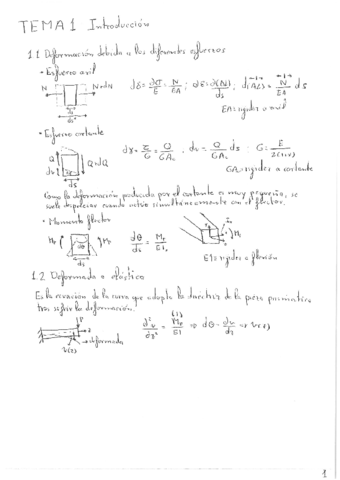 TEMA 1 Introducción
1.1 Deformación debida a los diferentes esfuerzos
• Esfuerzo axil
N N+dN
dε = dσ/E = N/EA ; dε = d(N)/ds ; d(Δs) = N/EA ds
ds
EA = rigidez a axil
• Esfuerzo cortante
Q Q+dQ
dv
ds
dγ = τ/G = Q/GAc , dv = Q/GAc ds ; G = E/2(1+ν)
GA = rigidez a cortante
Como la deformación producida por el cortante es muy pequeña, se
suele despreciar cuando actúa simultáneamente con el flector.
• Momento flector
dθ/ds = Mf/EIz
ds
EI = rigidez a flexión
1.2 Deformada o elástica
Es la ecuación de la curva que adopta la directriz de la pieza prismática
tras sufrir la deformación.
deformada
v(s)
d²v/ds² = Mf/EI ⇒ dθ = dv/ds ⇒ v(s)
1